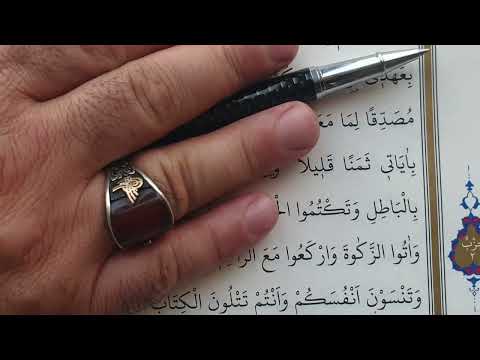 بِعَهْدٖٓي
مُصَدِّقًا لِمَا مَعَ
بِاٰيَاتٖي ثَمَنًا قَلٖيلًا
بِالْبَاطِلِ وَتَكْتُمُوا الْحَ
وَاٰتُوا الزَّكٰوةَ وَارْكَعُوا مَعَ الرَّا
وَتَنْسَوْنَ اَنْفُسَكُمْ وَاَنْتُمْ تَتْلُونَ الْكِتَابَ
حزب
٢